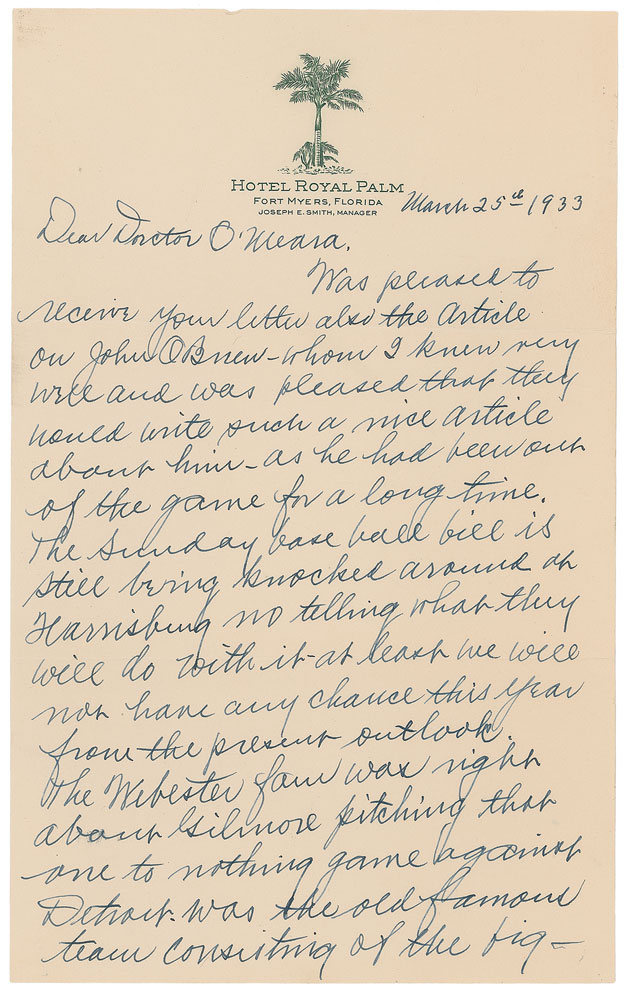 HOTEL ROYAL PALM
FORT MYERS, FLORIDA
JOSEPH E. SMITH, MANAGER
March 25th 1933
Dear Doctor O'Meara.
Was pleased to
receive your letter also the Article
on John O'Brien - whom I knew very
well and was pleased that they
would write such a nice article
about him - as he had been out
of the game for a long time.
The Sunday base ball bill is
still being knocked around at
Harrisburg no telling what they
will do with it - at least we will
not have any chance this year
from the present outlook.
The Webester fan was right
about Gilmore pitching that
one to nothing game against
Detroit. was the old famous
team consisting of the big -